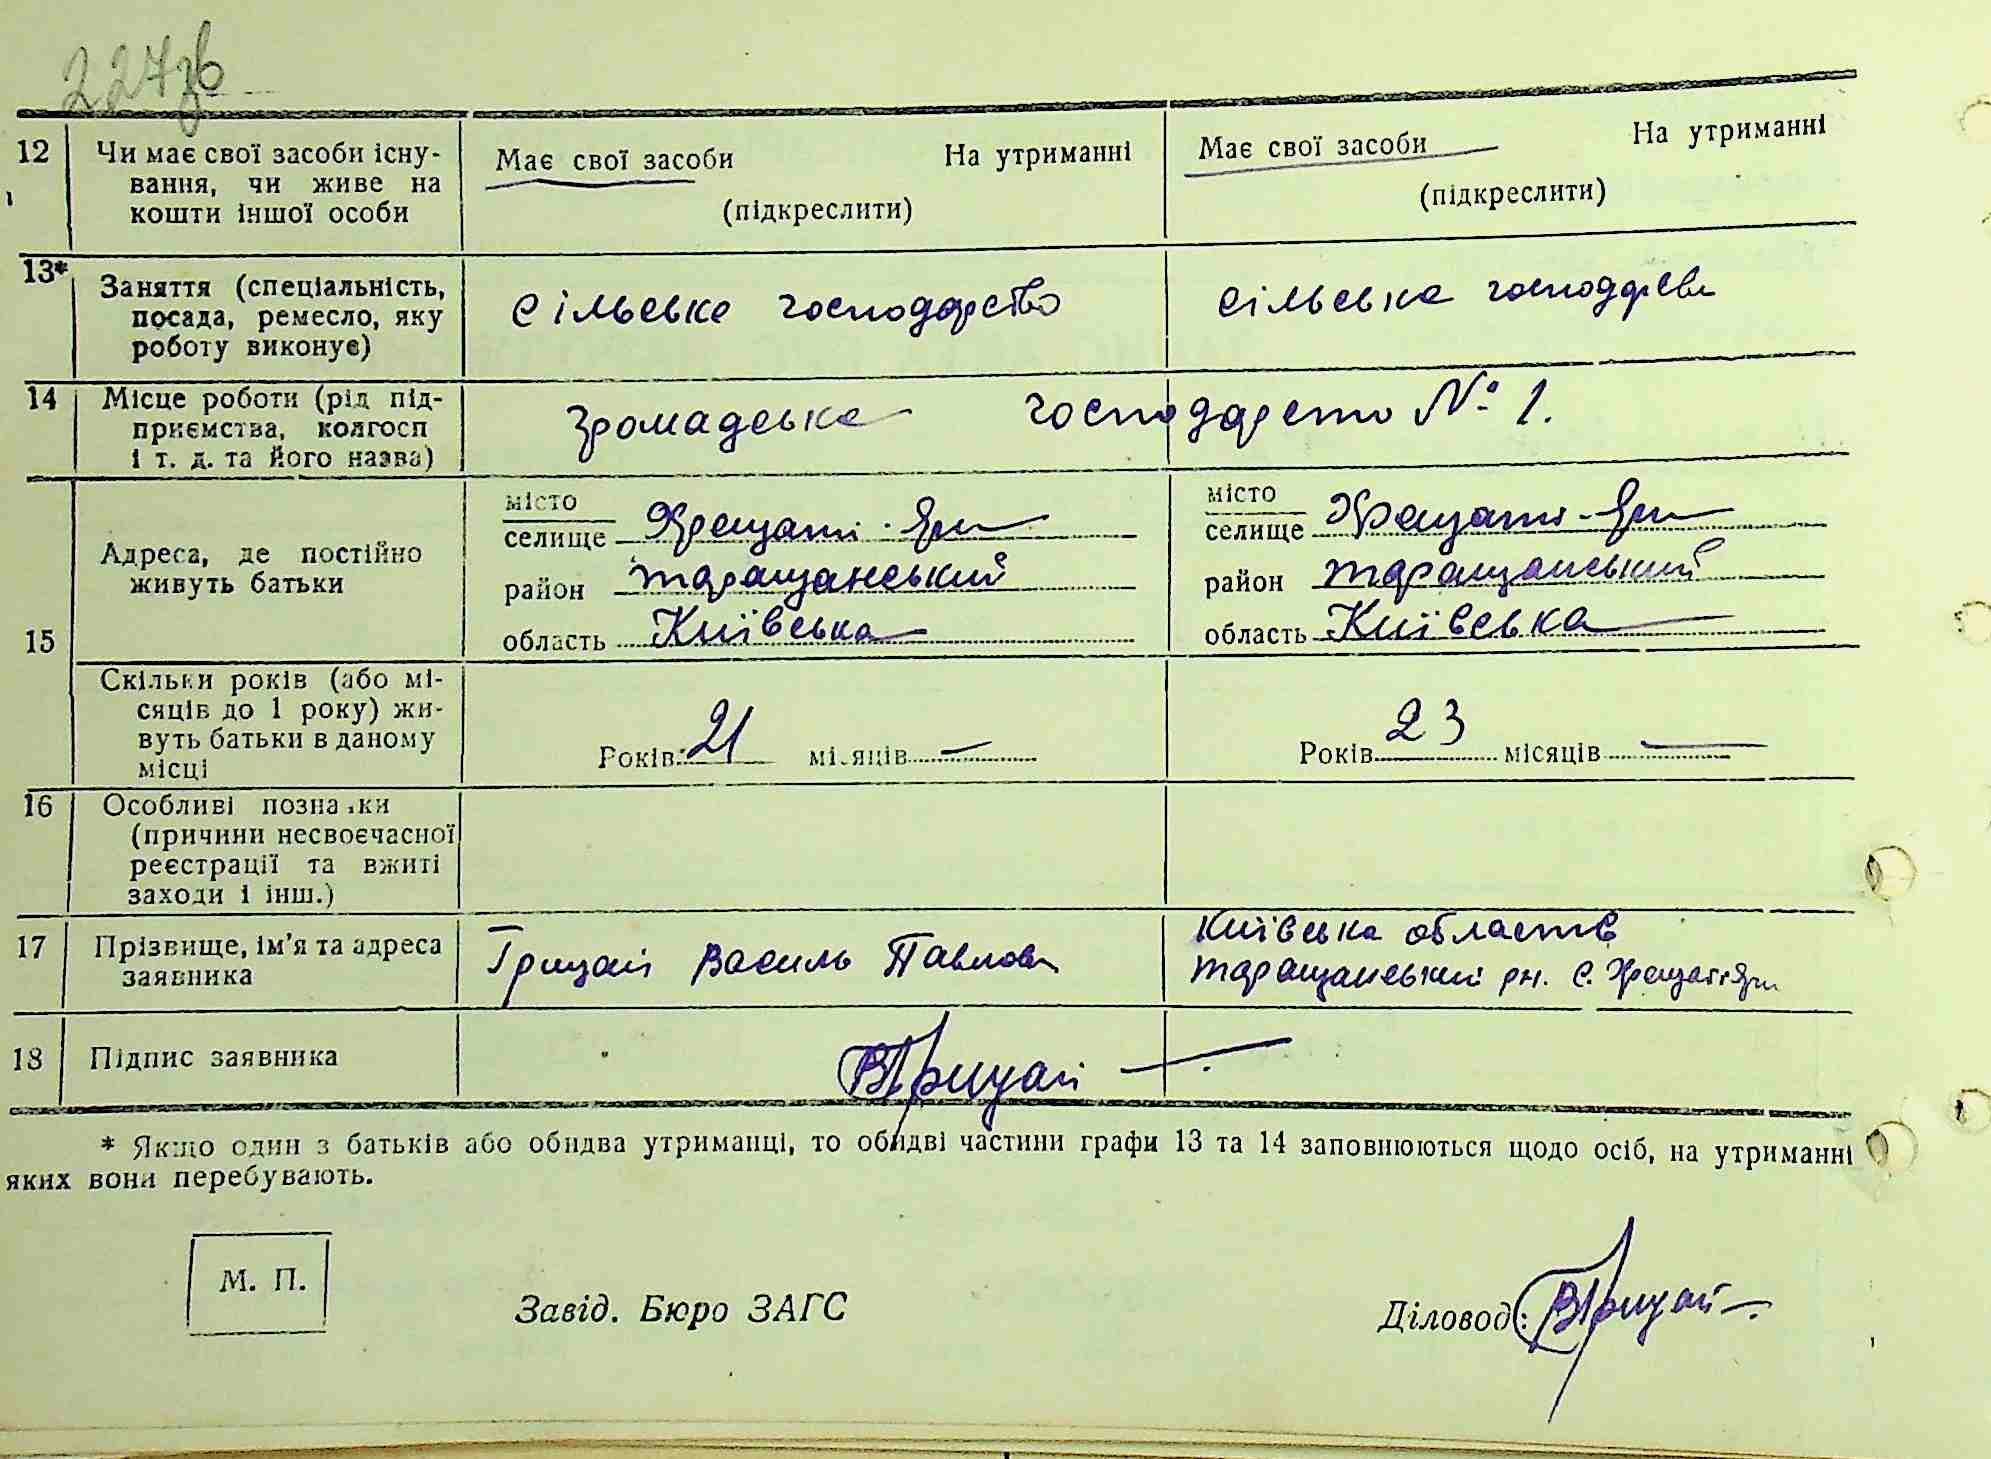 227зв
12 Чи має свої засоби існу- Має свої засоби На утриманні Має свої засоби На утриманні
вання, чи живе на
кошти іншої особи (підкреслити) (підкреслити)
13* Заняття (спеціальність, сільське господарство сільське
посада, ремесло, яку
роботу виконує)
14 Місце роботи (рід під- Громадське № 1.
приємства, колгосп
і т. д. та його назва)
15 Адреса, де постійно живуть батьки
місто
селище Хрещаті-Яри
район Таращанський
область Київська
місто
селище Хрещаті-Яри
район Таращанський
область Київська
Скільки років (або мі-
сяців до 1 року) жи-
вуть батьки в даному
місці
Років 21 місяців — Років 23 місяців —
16 Особливі познаки
(причини несвоєчасної
реєстрації та вжиті
заходи і інш.)
17 Прізвище, ім'я та адреса
заявника
Грицай Василь Павлов
Київська область
Таращанський рн. с. Хрещаті Яри
18 Підпис заявника ВГрицай
* Якщо один з батьків або обидва утриманці, то обидві частини графи 13 та 14 заповнюються щодо осіб, на утриманні
яких вони перебувають.
М. П.
Завід. Бюро ЗАГС Діловод: ВГрицай